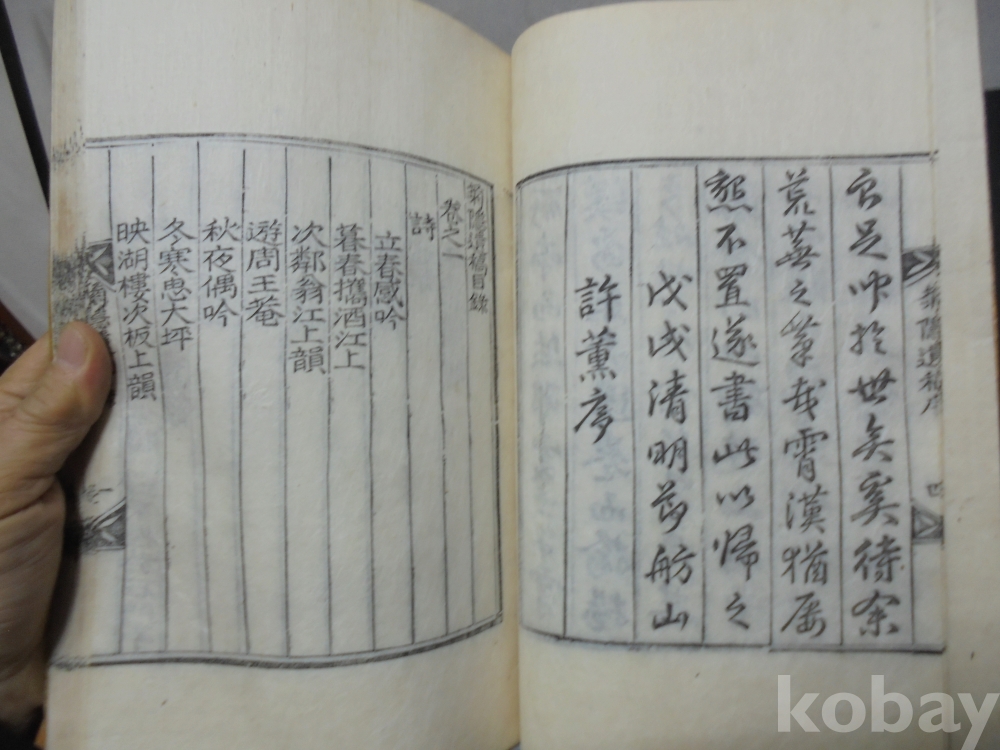 足於世矣奚待余
荒蕪之筆哉霄漢猶屢
懇不置遂書此以歸之
戊戌清明節舫山
許薰序
菊隱遺稿序 四
菊隱遺稿目錄
卷之一
詩
立春感吟
暮春攜酒江上
次鄰翁江上韻
遊周王菴
秋夜偶吟
冬寒大坪
映湖樓次板上韻
kobay